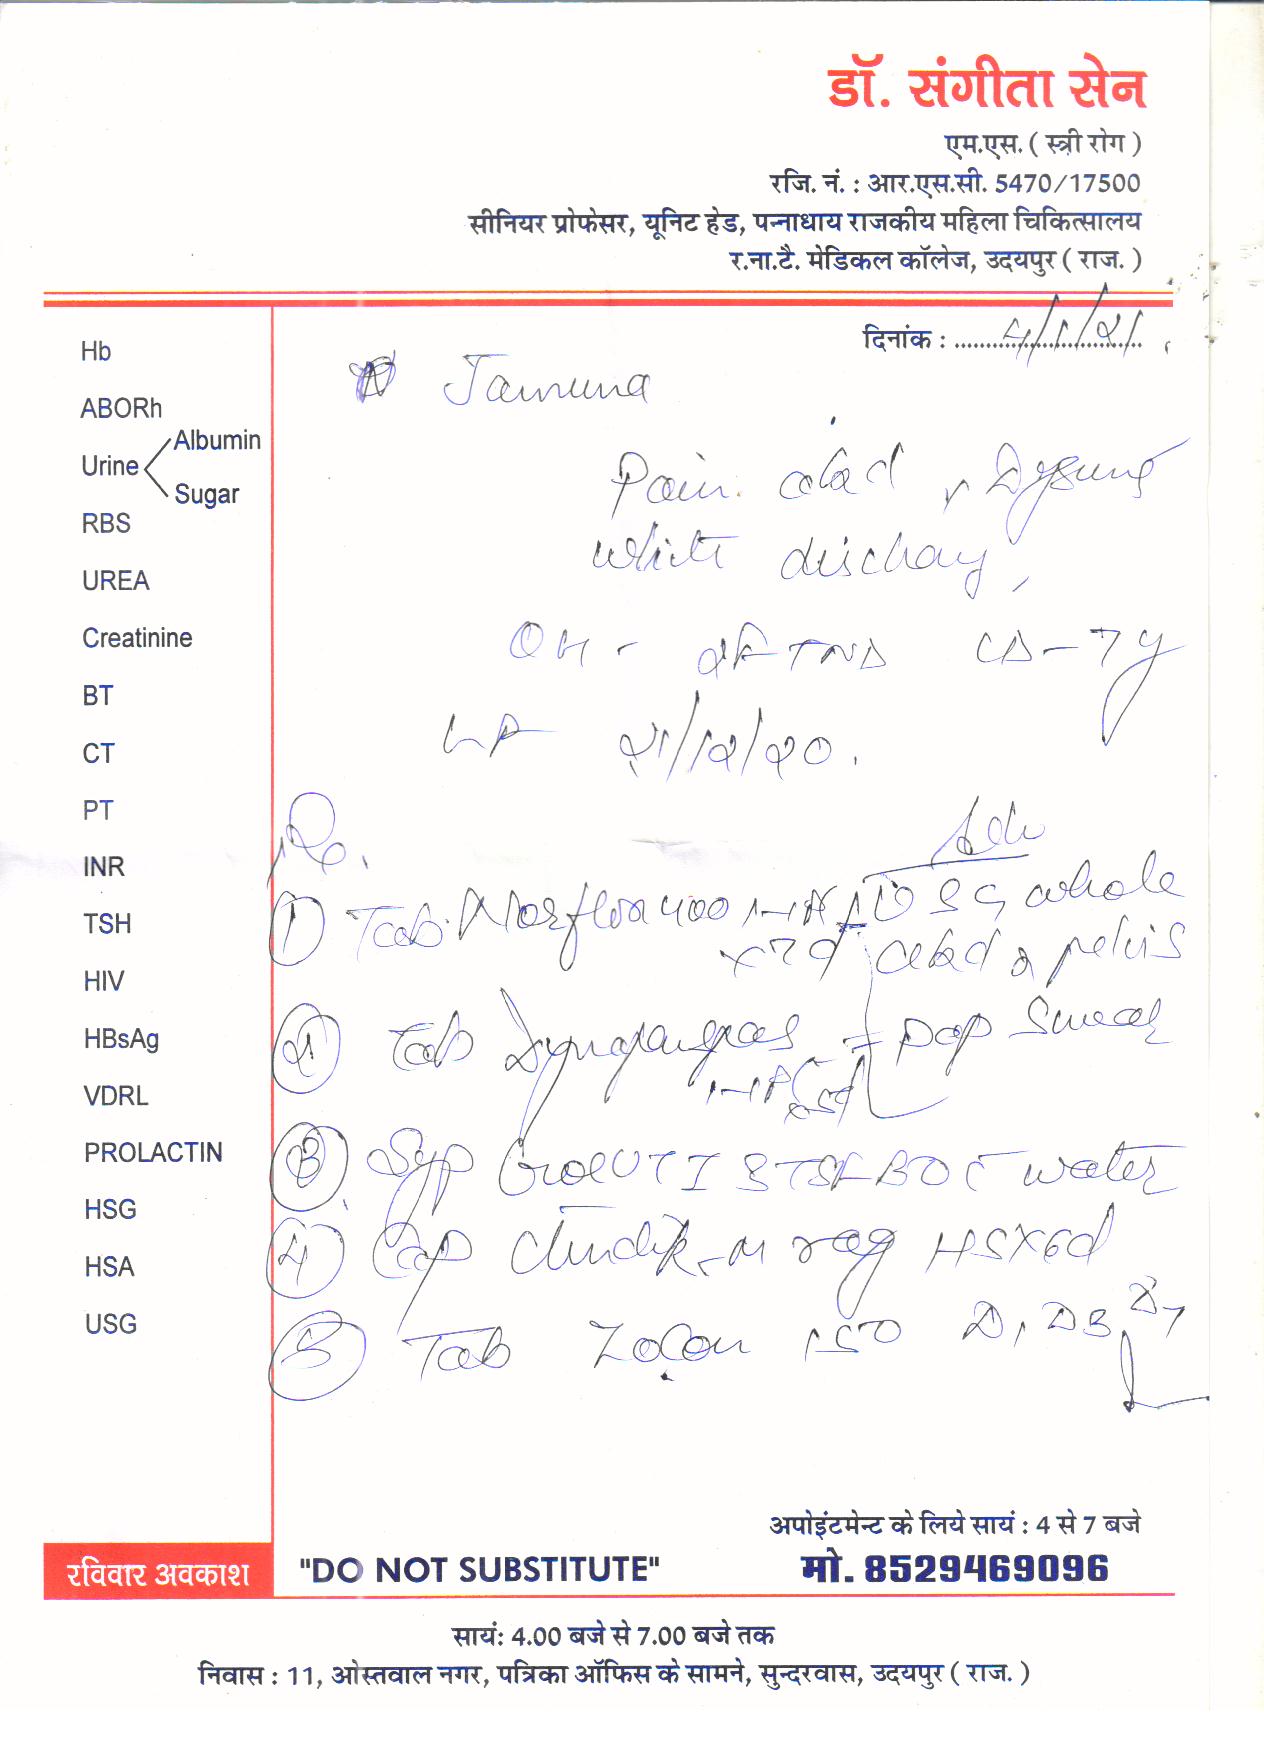 डॉ. संगीता सेन
एम.एस. ( स्त्री रोग )
रजि. नं. : आर.एस.सी. 5470/17500
सीनियर प्रोफेसर, यूनिट हेड, पन्नाधाय राजकीय महिला चिकित्सालय
र.ना.टै. मेडिकल कॉलेज, उदयपुर ( राज. )
दिनांक : 4/1/21
Hb
ABORh
Urine Albumin
Sugar
RBS
UREA
Creatinine
BT
CT
PT
INR
TSH
HIV
HBsAg
VDRL
PROLACTIN
HSG
HSA
USG
Jamuna
Pain abd
white
OH - FTND LD - 7y
21/12/20.
Rx.
Adv
① Tab. Norflox 400 1-1 x 7d
USG whole
abd & pelvis
② Tab
Pap Smear
③ Syp UTI 3TSF BD c water
④ Cap M vag HS x 6d
⑤ Tab Zocon 150 D1 D3 D7
अपोइंटमेन्ट के लिये सायं : 4 से 7 बजे
रविवार अवकाश
"DO NOT SUBSTITUTE"
मो. 8529469096
सायं: 4.00 बजे से 7.00 बजे तक
निवास : 11, ओस्तवाल नगर, पत्रिका ऑफिस के सामने, सुन्दरवास, उदयपुर ( राज. )